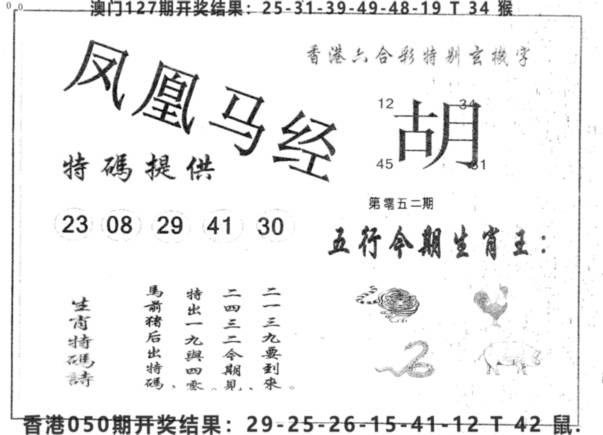 澳门127期开奖结果：25-31-39-49-48-19 T 34 猴
香港六合彩特别玄機字
凤凰马经
12 34
胡
45 31
特碼提供
第零五二期
23 08 29 41 30
五行今期生肖王：
二一三九要到來。
二四三二今期見、
特出一九與四零。
馬前猪后出特碼、
生肖特碼詩
香港050期开奖结果：29-25-26-15-41-12 T 42 鼠.